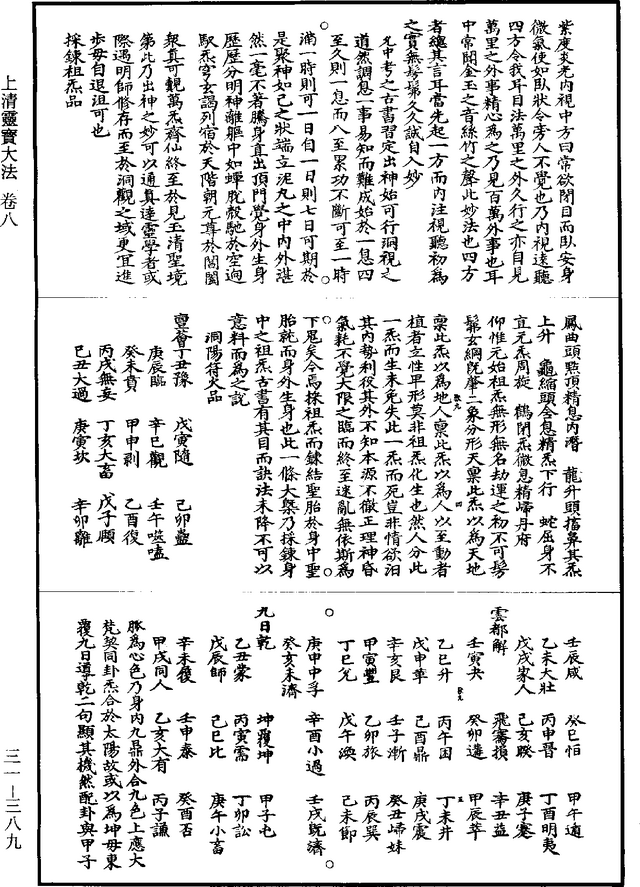 上清靈寶大法 卷八
三一—三八九
紫庚炎光內視中方曰常欲閉目而臥安身
微氣使如臥狀令旁人不覺也乃內視遠聽
四方令我耳目注萬里之外久行之亦自見
萬里之外事精心為之乃見百萬外事也耳
中常聞金玉之音絲竹之聲此妙法也四方
者總其言耳當先起一方而內注視聽初為
之實無髣髴久久誠自入妙
允中考之古書習定出神始可行洞視之
道然調息一事易知而難成始於一息四
至久則一息而八至累功不斷可至一時
滿一時則可一日自一日則七日可期於
是聚神如己之狀端立泥丸之中內外湛
然一毫不著騰身直出頂門覺身外生身
歷歷分明神離軀中如蟬脫殼馳於空迥
馭炁穹玄謁列宿於天階朝元尊於閶闔
眾真可覿萬炁齊仙終至於見玉清聖境
第此乃出神之妙可以通真達靈學者或
際遇明師修存而至於洞觀之域更宜進
步毋自退沮可也
採鍊祖炁品
鳳曲頭㸃頂精息內潛 龍升頭擋鼻其炁
上升 龜縮頭含息精炁下行 蛇屈身不
宜元炁周旋 鶴閉炁微息精歸丹府
仰惟元始祖炁無形無名劫運之初不可髣
髴玄綱既肇二象分形天稟此炁以為天地
稟此炁以為地人稟此炁以為人以至動者
植者立性卑形莫非祖炁化生也然人分此
一炁而生未免失此一炁而死豈非情欲汩
其內勢利役其外不知本源不徹正理神昏
氣耗不覺大限之臨而終至迷亂無依斯為
下鬼矣今焉採祖炁而鍊結聖胎於身中聖
胎就而身外生身也此一條大槩乃採鍊身
中之祖炁古書有其目而訣法未降不可以
意料而為之說
洞陽符火品
丁丑豫 戊寅隨 己卯蠱
庚辰臨 辛巳觀 壬午噬嗑
癸未賁 甲申剥 乙酉復
丙戌無妄 丁亥大畜 戊子頤
己丑大過 庚寅坎 辛卯離
壬辰咸 癸巳恒 甲午遁
乙未大壯 丙申晉 丁酉明夷
戊戌家人 己亥睽 庚子蹇
雲都解 飛霄損 辛丑益
壬寅夬 癸卯遘 甲辰萃
乙巳升 丙午困 丁未井
戊申革 己酉鼎 庚戌震
辛亥艮 壬子漸 癸丑歸妹
甲寅豐 乙卯旅 丙辰巽
丁巳兌 戊午渙 己未節
庚申中孚 辛酉小過 壬戌既濟
癸亥未濟
九日乾 坤覆坤 甲子屯
乙丑蒙 丙寅需 丁卯訟
戊辰師 己巳比 庚午小畜
辛未履 壬申泰 癸酉否
甲戌同人 乙亥大有 丙子謙
脈為心色乃身內九鼎外合九色上應大
梵契同卦炁合於太陽故或以為坤毋東
覆九日導乾二句顯其機然配卦與甲子